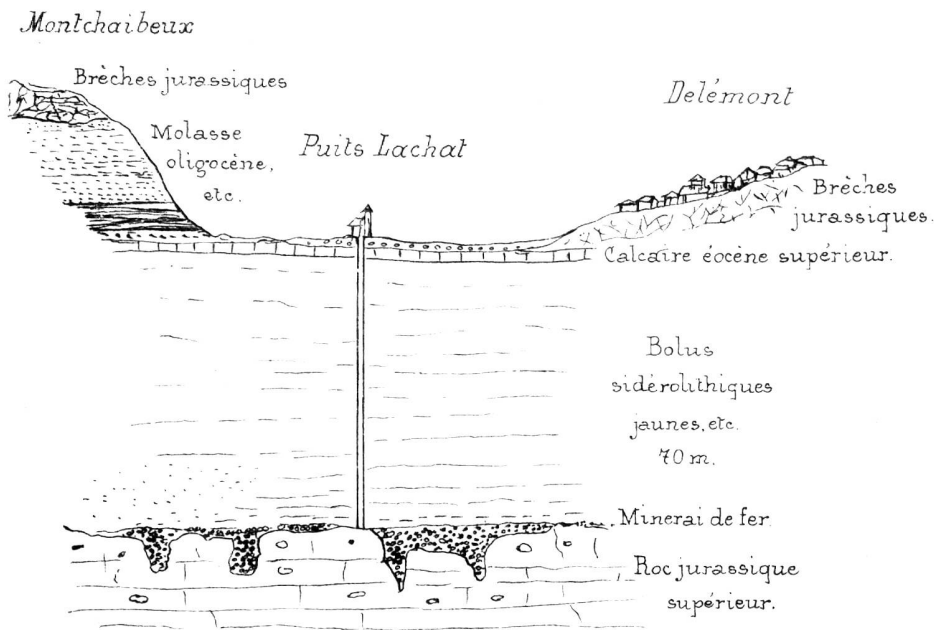 Montchaibeux
Brèches jurassiques
Molasse
oligocène,
etc.
Puits Lachat
Delémont
Brèches
jurassiques.
Calcaire éocène supérieur.
Bolus
sidérolithiques
jaunes, etc.
70 m.
Minerai de fer
Roc jurassique
supérieur.